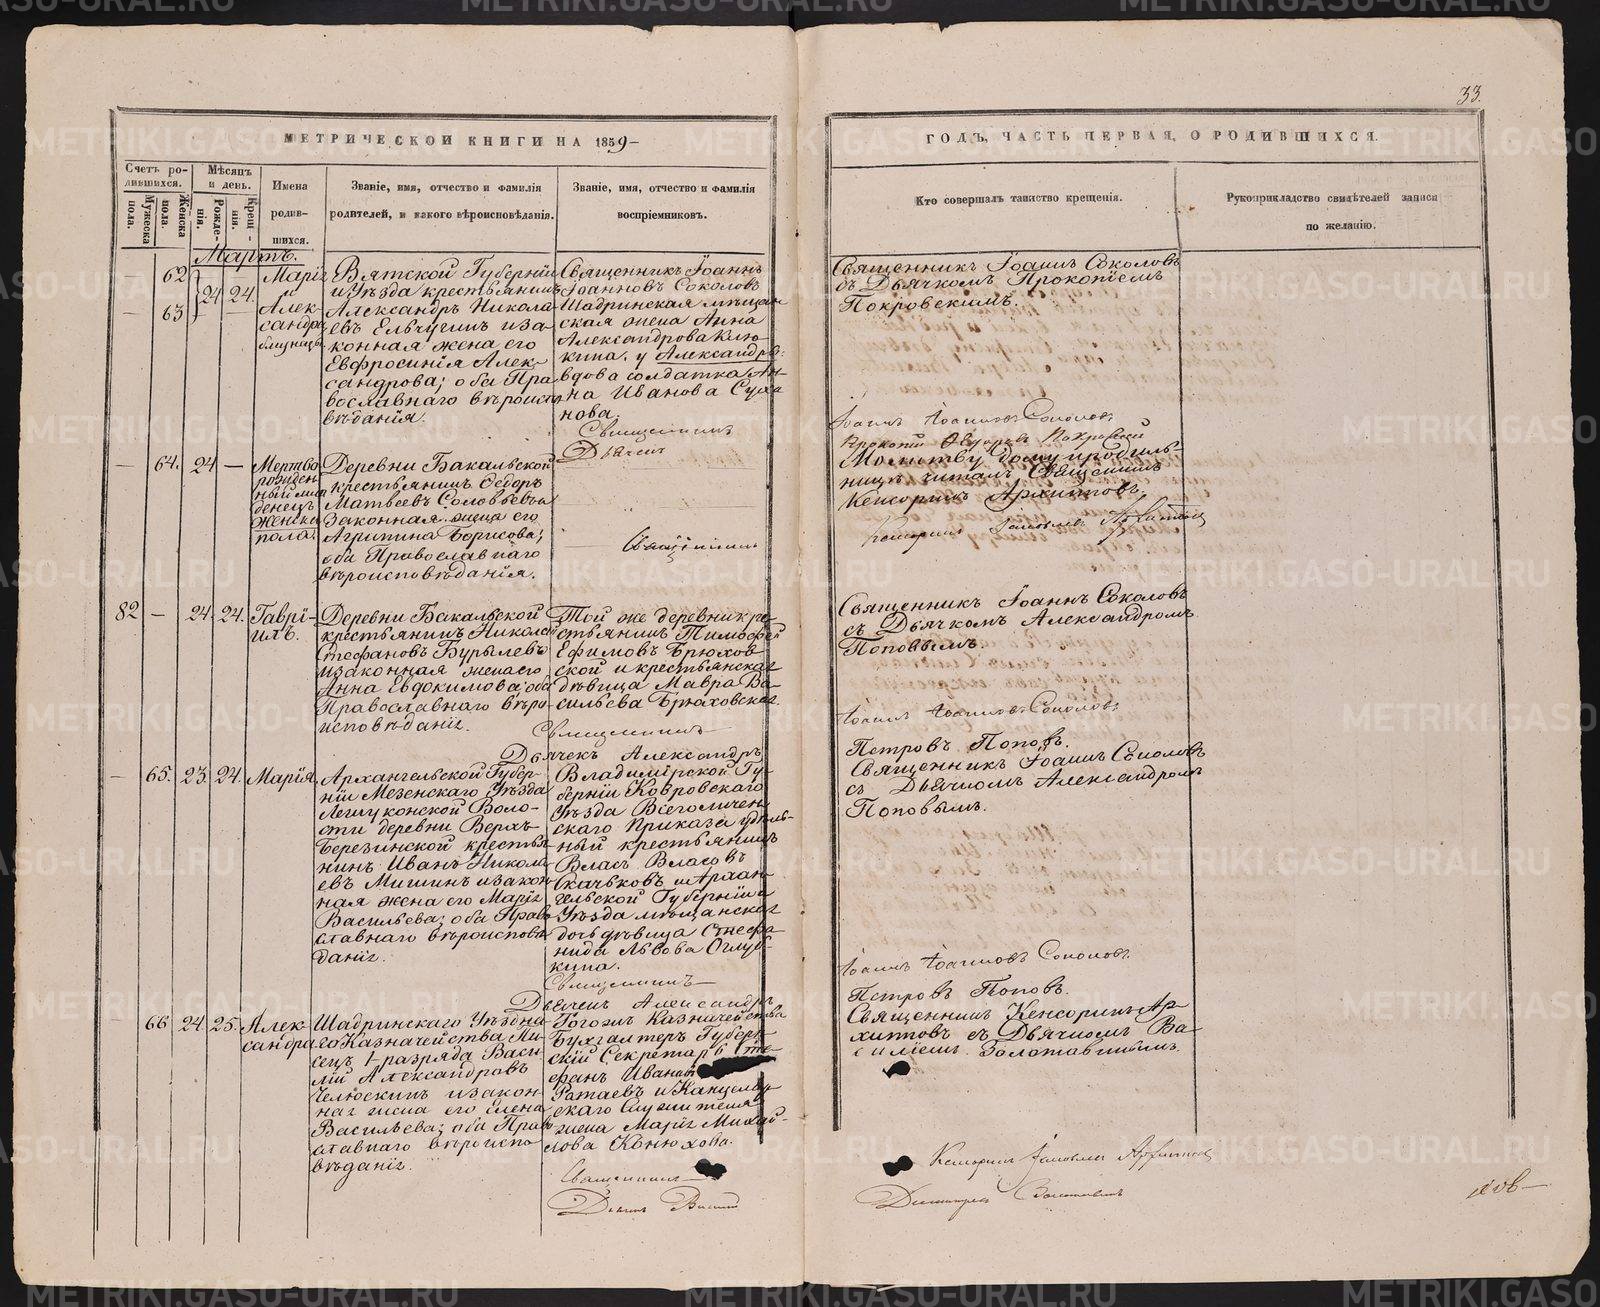 33.
МЕТРИЧЕСКОЙ КНИГИ НА 1859-
ГОДЪ, ЧАСТЬ ПЕРВАЯ, О РОДИВШИХСЯ.
Счетъ ро-
дившихся.
Мужеска
пола.
Женска
пола.
Мѣсяцъ
и день.
Рожде-
нія.
Крещ-
нія.
Имена
родив-
шихся.
Званіе, имя, отчество и фамилія
родителей, и какого вѣроисповѣданія.
Званіе, имя, отчество и фамилія
воспріемниковъ.
Кто совершалъ таинство крещенія.
Рукоприкладство свидѣтелей записи
по желанію.
Мартъ.
62
63
24
24.
Марія
и
Алек-
сандра
близнецы
Вятской Губерніи
и Уѣзда крестьянинъ
Александръ Никола-
евъ Ельчугинъ и за-
конная жена его
Евфросинія Алек-
сандрова; оба Пра-
вославнаго вѣроиспо
вѣданія.
Священникъ Іоаннъ
Іоанновъ Соколовъ
Шадринская мѣщан
ская жена Анна
Александрова Клю-
кина. у Александры:
вдова солдатка Ан-
на Иванова Суха
нова.
Священникъ
Дьячекъ
Священникъ Іоаннъ Соколовъ
съ Дьячкомъ Прокопіемъ
Покровскимъ.
Іоаннъ Іоанновъ Соколовъ
64.
24
Мертво
рожден
ный мла
денецъ
женска
пола.
Деревни Бакальской
крестьянинъ Ѳедоръ
Матвеевъ Соловьевъ и
законная жена его
Агрипина Борисова;
оба Православнаго
вѣроисповѣданія.
Священникъ
Молитву дому и родиль-
ницѣ читалъ Священникъ
Кенсоринъ Архиповъ.
82
24.
24.
Гаврі-
илъ.
Деревни Бакальской
крестьянинъ Николай
Стефановъ Бурылевъ
и законная жена его
Анна Евдокимова; оба
Православнаго вѣро-
исповѣданія.
Той же деревни кре-
стьянинъ Тимофей
Ефимовъ Брюхов
ской и крестьянская
дѣвица Мавра Ва-
сильева Брюховская.
Священникъ
Дьячекъ Александръ
Священникъ Іоаннъ Соколовъ
съ Дьячкомъ Александромъ
Поповымъ.
Іоаннъ Іоанновъ Соколовъ
Петровъ Поповъ.
65.
23.
24.
Марія.
Архангельской Губер-
ніи Мезенскаго Уѣзда
Лешуконской Воло-
сти деревни Верхъ-
Березинской крестья
нинъ Иванъ Никола
евъ Мишинъ и закон
ная жена его Марія
Васильева; оба Право
славнаго вѣроисповѣ
данія.
Владимірской Гу-
берніи Ковровскаго
Уѣзда
скаго Приказа удѣль-
ный крестьянинъ
Власъ Власовъ
и Архан-
гельской Губерніи и
Уѣзда мѣщанская
дочь дѣвица Стефа-
нида Львова
Священникъ
Дьячекъ Александръ
Священникъ Іоаннъ Соколовъ
съ Дьячкомъ Александромъ
Поповымъ.
Іоаннъ Іоанновъ Соколовъ
Петровъ Поповъ.
66
24.
25.
Алек-
сандра
Шадринскаго Уѣздна-
го Казначейства Пи-
сецъ 1 разряда Васи-
лій Александровъ
Челюскинъ и закон
ная жена его Елена
Васильева; оба Право
славнаго вѣроиспо
вѣданія.
Тогожъ Казначейства
Бухгалтеръ Губерн-
скій Секретарь Сте-
фанъ Иванов
Ратаевъ и Канцеляр
скаго Служителя
жена Марія Михай-
лова Конюхова.
Священникъ
Дьячекъ Василій
Священникъ Кенсоринъ Ар-
хиповъ съ Дьячкомъ Ва-
силіемъ Золотавинымъ.